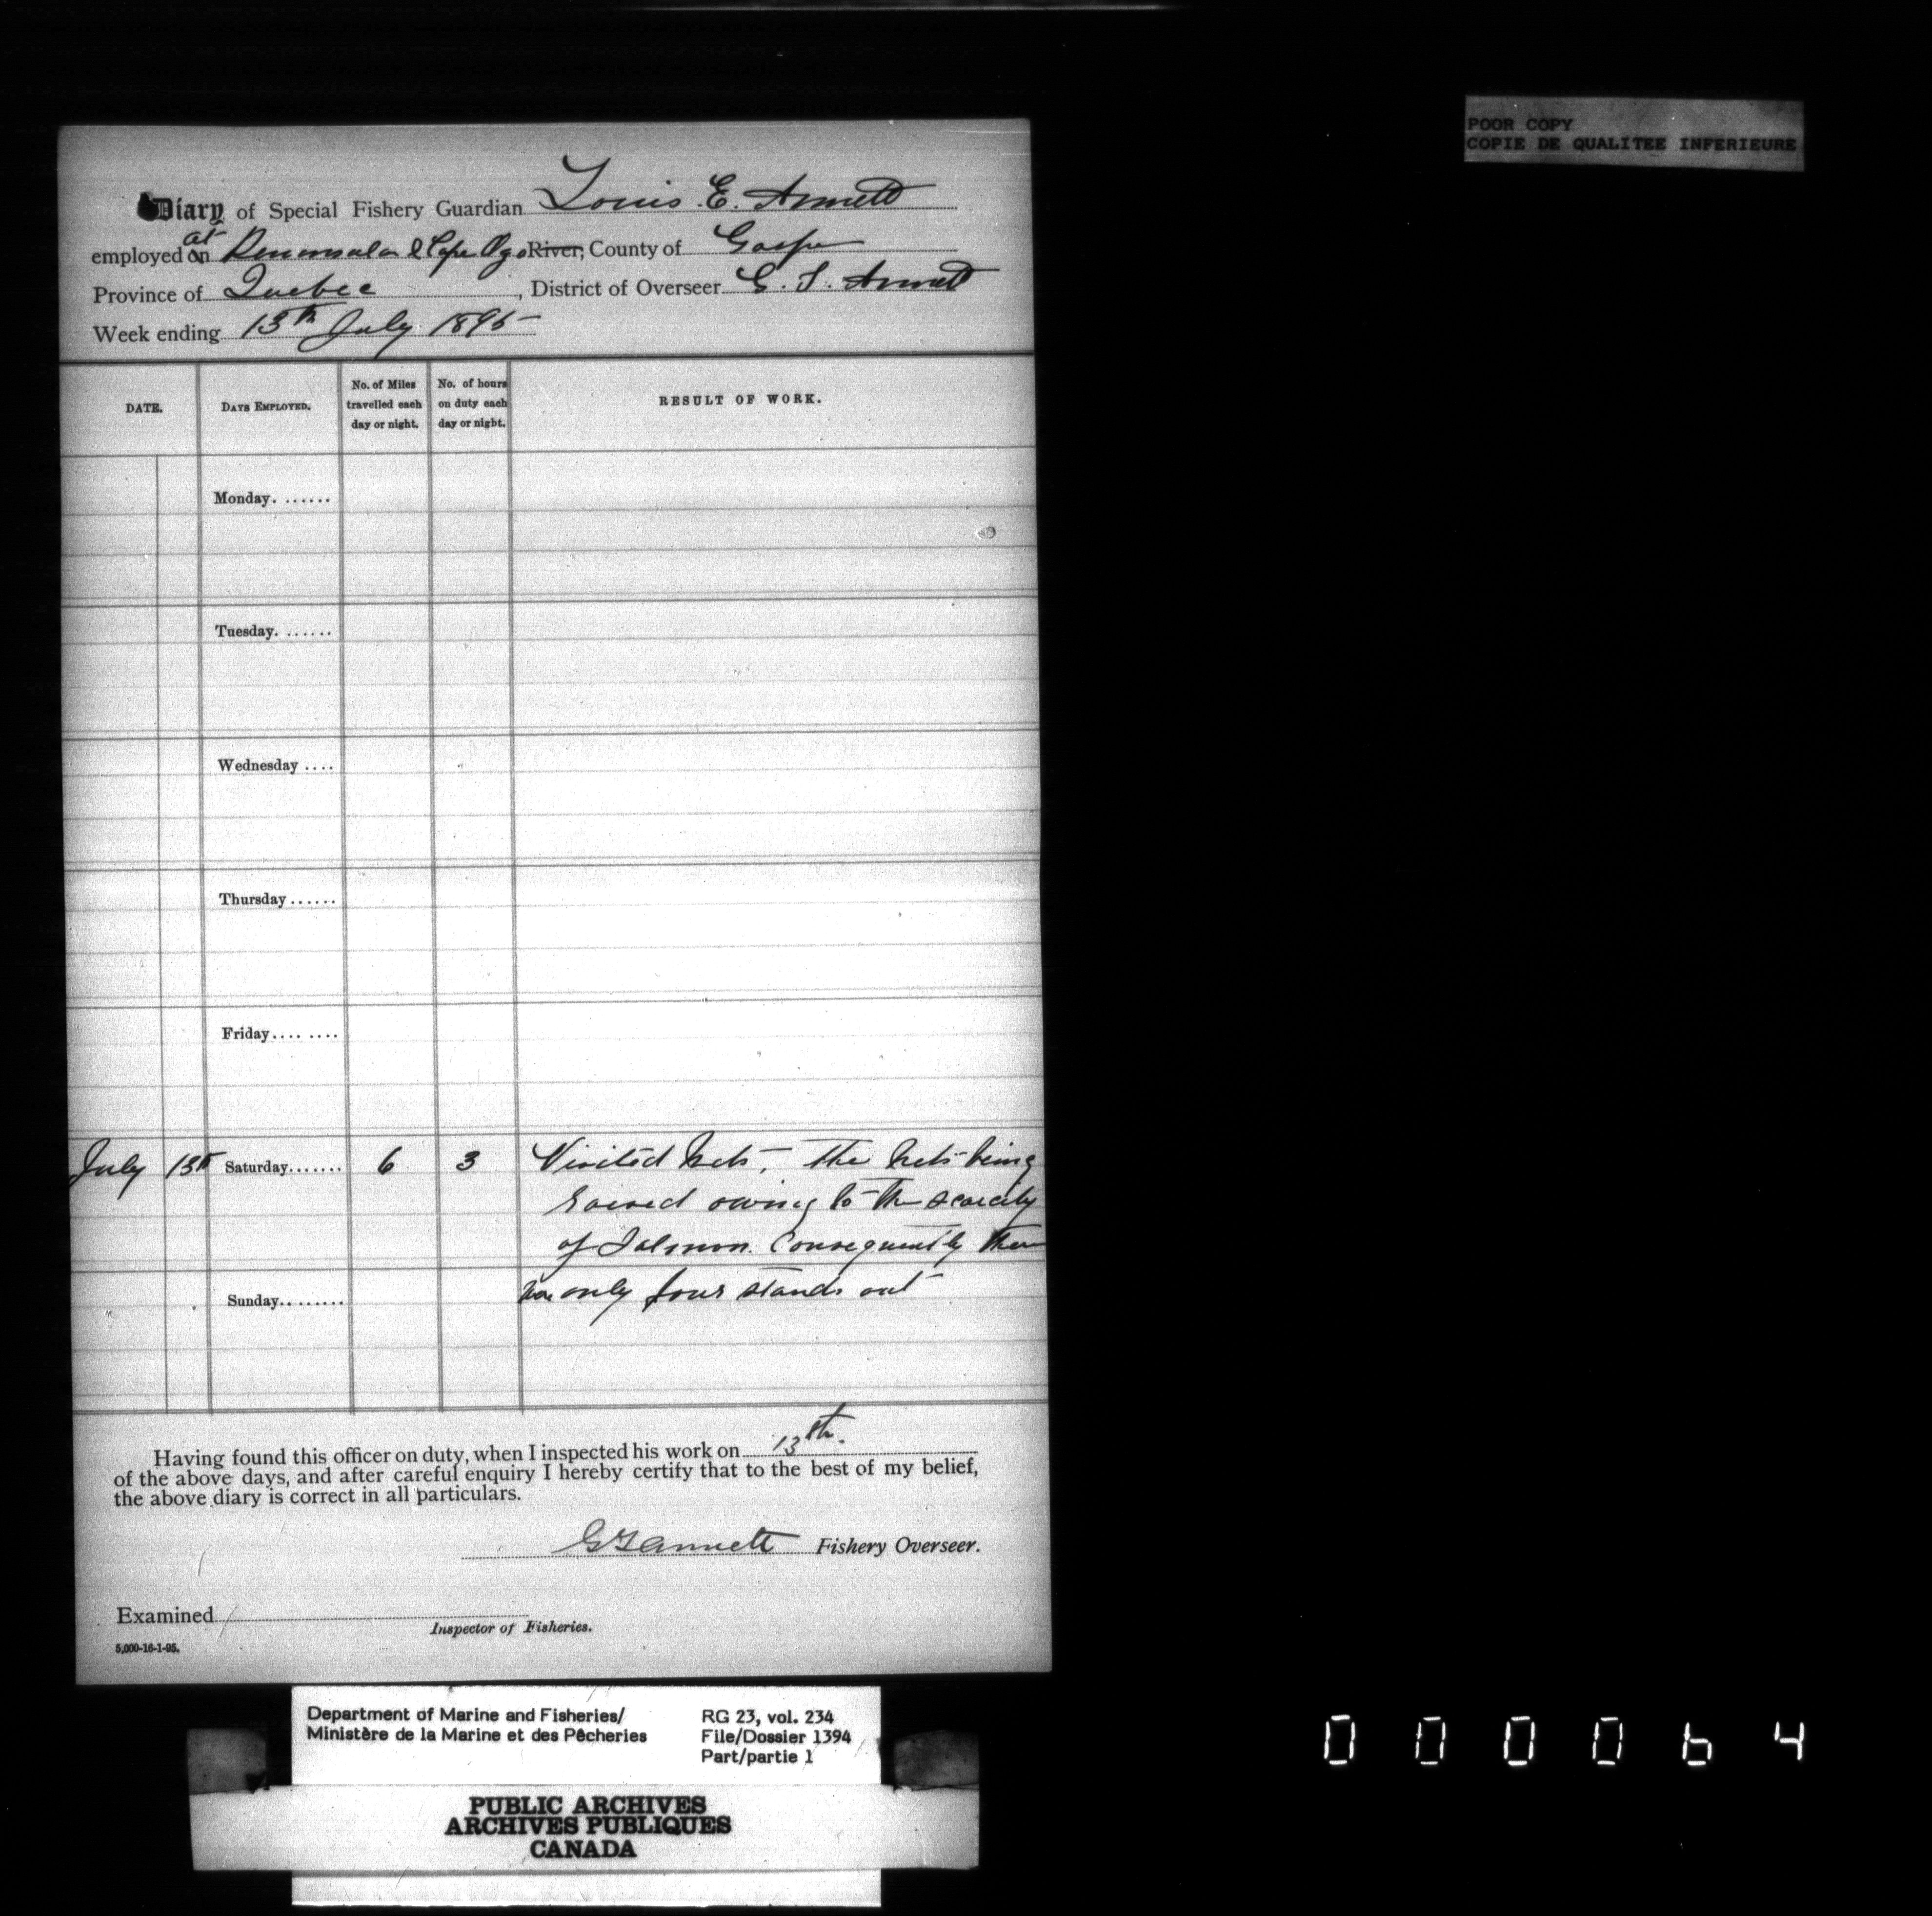 POOR COPY
COPIE DE QUALITEE INFERIEURE
Diary of Special Fishery Guardian Louis E. Annett
employed on at Peninsula & Cape Ozo River, County of Gaspe
Province of Quebec, District of Overseer G. T. Annett
Week ending 13th July 1895
DATE. DAYS EMPLOYED. No. of Miles travelled each day or night. No. of hours on duty each day or night. RESULT OF WORK.
Monday.......
Tuesday.......
Wednesday ....
Thursday ......
Friday........
July 13th Saturday....... 6 3 Visited Nets, The Nets being
owing to the scarcity
of Salmon. Consequently there
was only four stands out
Sunday.........
Having found this officer on duty, when I inspected his work on 13th.
of the above days, and after careful enquiry I hereby certify that to the best of my belief,
the above diary is correct in all particulars.
G T Annett Fishery Overseer.
Examined
Inspector of Fisheries.
5,000-16-1-95.
Department of Marine and Fisheries/ RG 23, vol. 234
Ministère de la Marine et des Pêcheries File/Dossier 1394
Part/partie 1
PUBLIC ARCHIVES
ARCHIVES PUBLIQUES
CANADA
000064